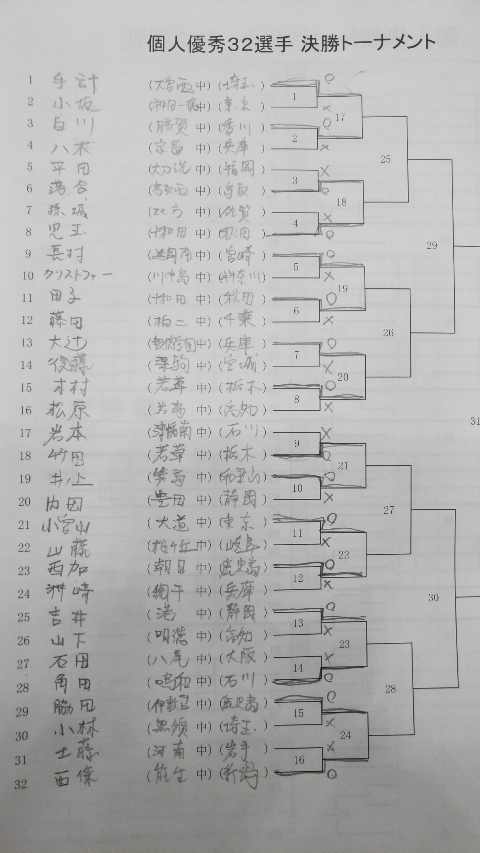 個人優秀32選手 決勝トーナメント
1 手計 (大宮西中) (埼玉)
2 小坂 (神田一橋中) (東京)
3 白川 (中) (香川)
4 八木 (中) (兵庫)
5 平田 (中) (福岡)
6 落合 (鳥取西中) (鳥取)
7 孫城 (中) (佐賀)
8 児玉 (十和田中) (秋田)
9 長村 (中) (宮崎)
10 クリストファー (川中島中) (神奈川)
11 田子 (十和田中) (秋田)
12 藤田 (柏二中) (千葉)
13 大辻 (中) (兵庫)
14 後藤 (栗駒中) (宮城)
15 木村 (若草中) (栃木)
16 松原 (中) (高知)
17 岩本 (津幡南中) (石川)
18 竹田 (若草中) (栃木)
19 井上 (中) (和歌山)
20 内田 (豊田中) (静岡)
21 小宮山 (大道中) (東京)
22 山藤 (桜ヶ丘中) (岐阜)
23 西加 (朝日中) (鹿児島)
24 洲崎 (網干中) (兵庫)
25 吉井 (港中) (静岡)
26 山下 (明徳中) (高知)
27 石田 (八尾中) (大阪)
28 角田 (鳴和中) (石川)
29 脇田 (伊敷台中) (鹿児島)
30 小林 (中) (埼玉)
31 士藤 (河南中) (岩手)
32 西條 (能生中) (新潟)
1
2
3
4
5
6
7
8
9
10
11
12
13
14
15
16
17
18
19
20
21
22
23
24
25
26
27
28
29
30
31